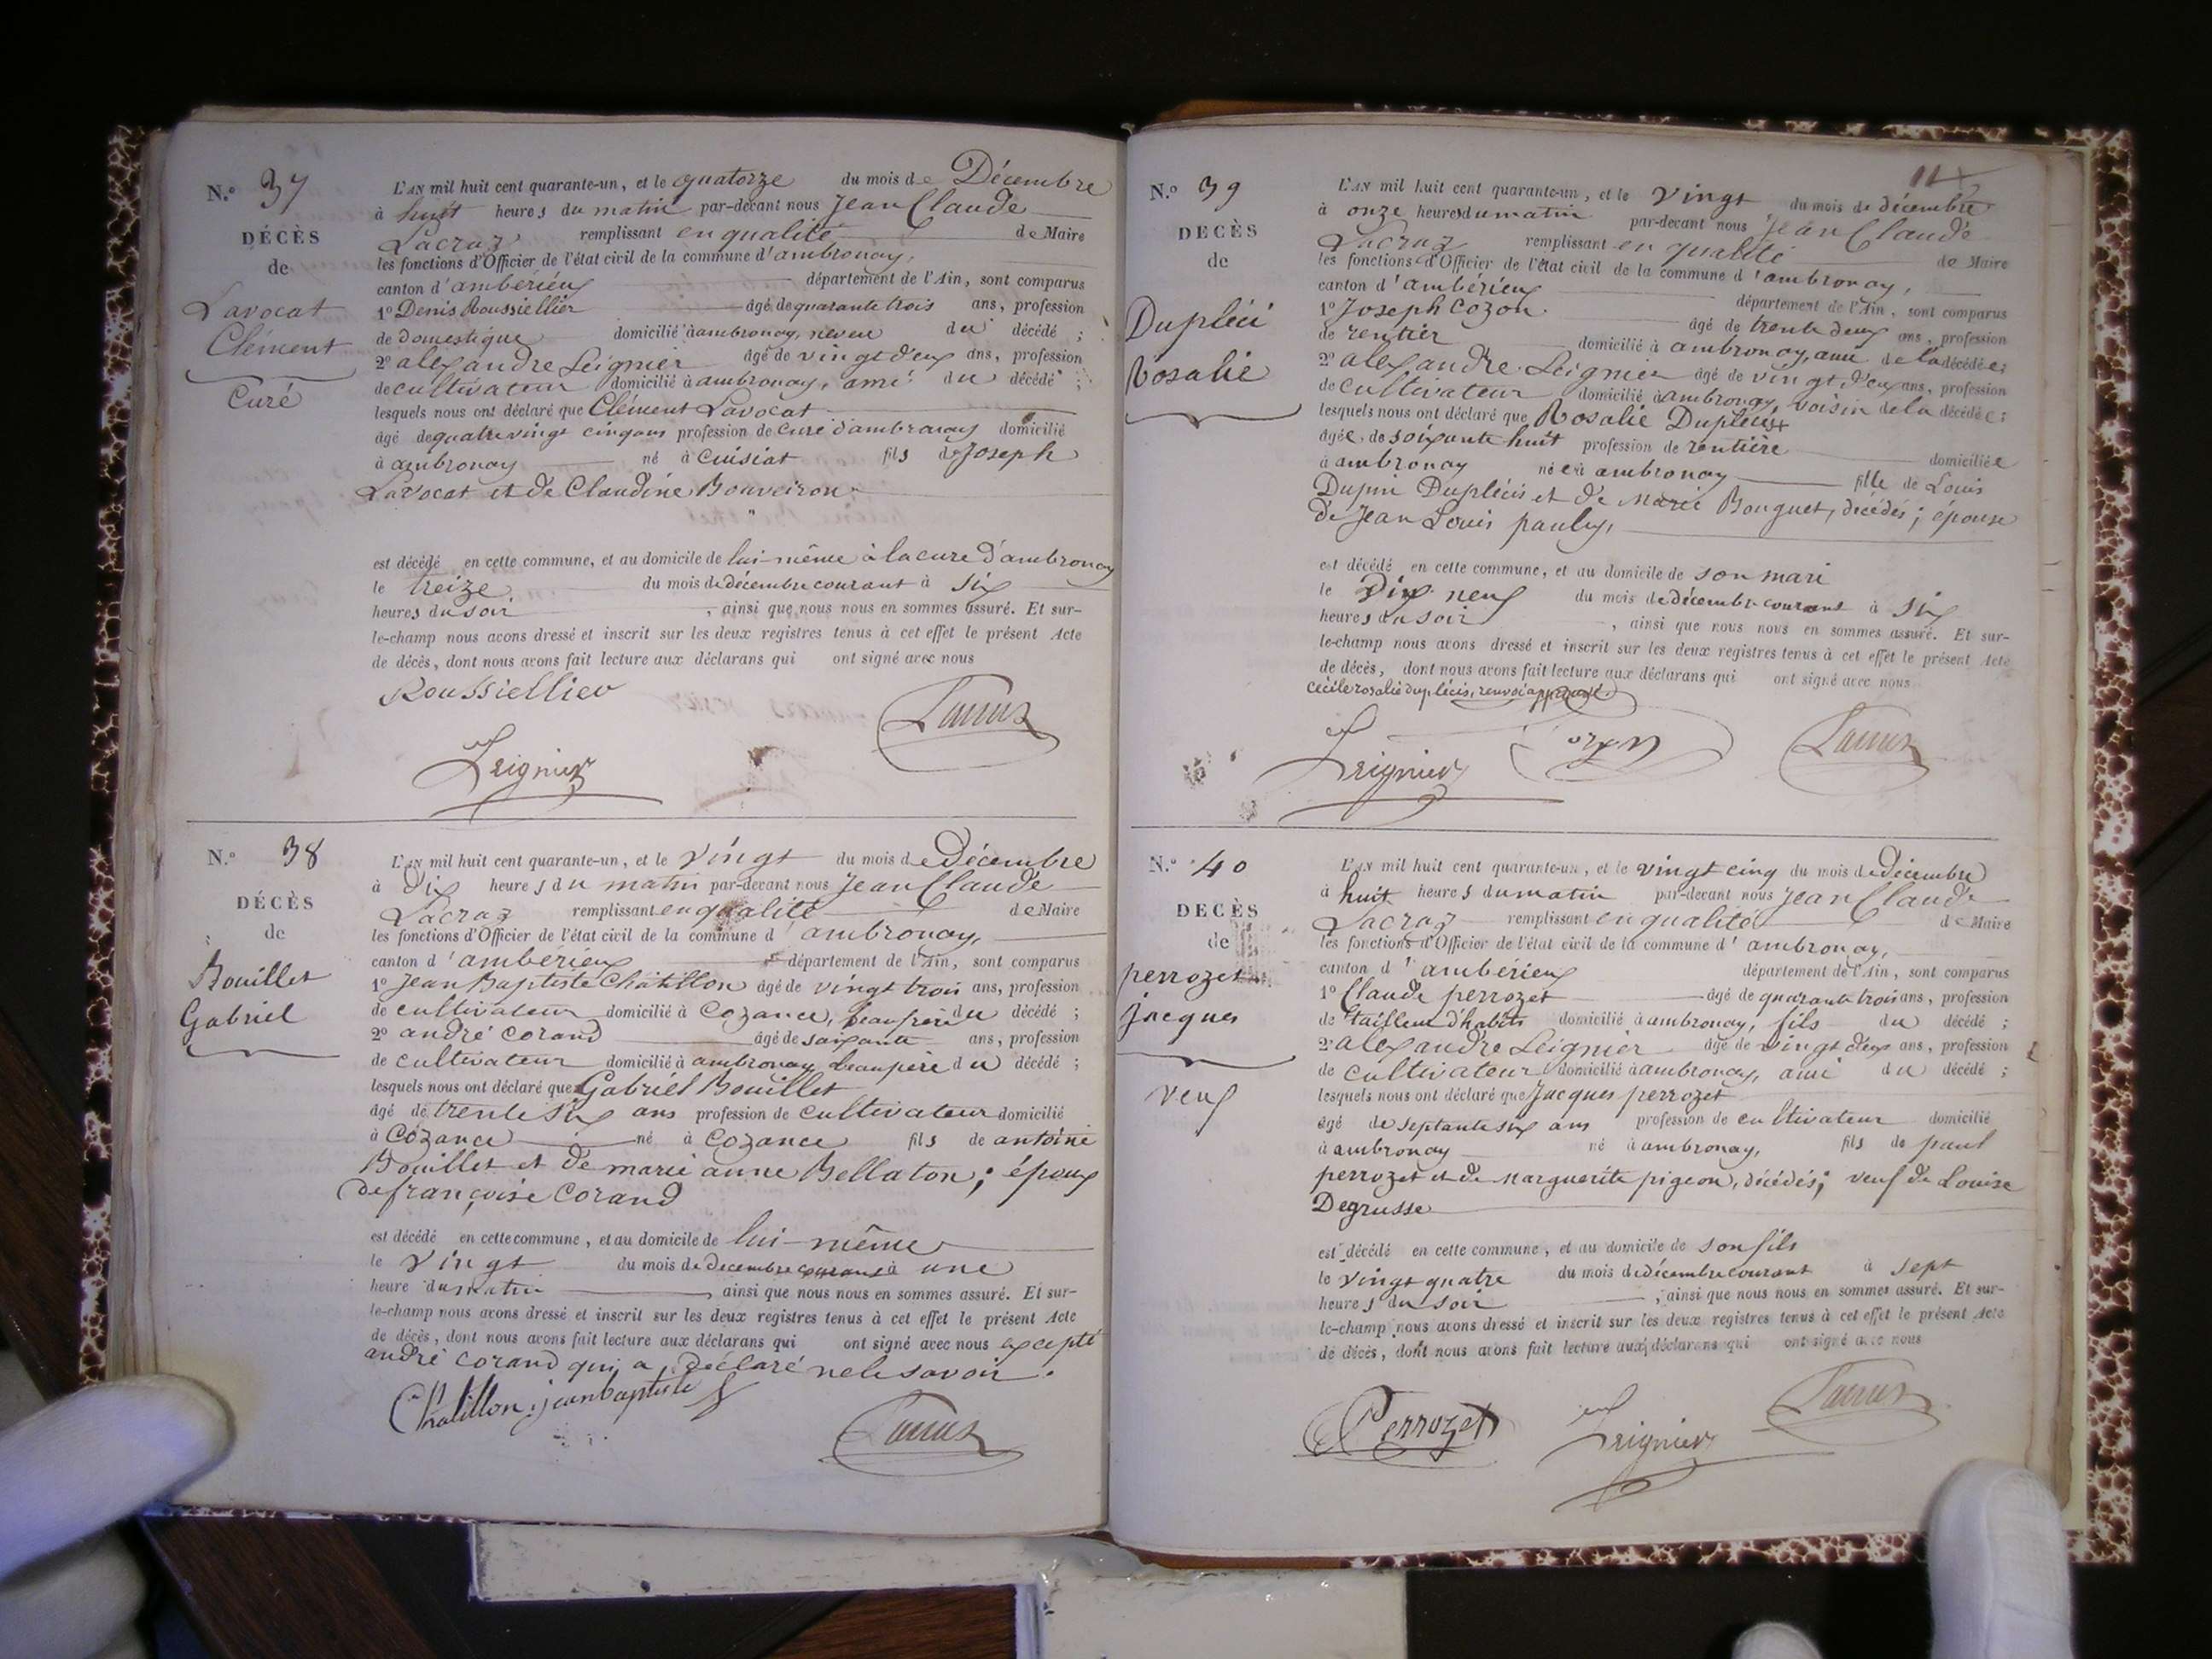 N.° 37
DÉCÈS
de
Lavocat
Clément
Curé
L'AN mil huit cent quarante-un, et le quatorze du mois de Décembre
à huit heures du matin par-devant nous Jean Claude
Lacraz remplissant en qualité de Maire
les fonctions d'Officier de l'état civil de la commune d'ambronay,
canton d'ambérieux département de l'Ain, sont comparus
1° Denis Roussiellier âgé de quarante trois ans, profession
de domestique domicilié à ambronay, neveu du décédé ;
2° alexandre Leignier âgé de vingt deux ans, profession
de cultivateur domicilié à ambronay, ami du décédé ;
lesquels nous ont déclaré que Clément Lavocat
âgé de quatre vingt cinq ans profession de curé d'ambronay domicilié
à ambronay né à Cuisiat fils de Joseph
Lavocat et de Claudine Bouveiron
est décédé en cette commune, et au domicile de lui-même à la cure d'ambronay
le treize du mois de décembre courant à six
heures du soir , ainsi que nous nous en sommes assuré. Et sur-
le-champ nous avons dressé et inscrit sur les deux registres tenus à cet effet le présent Acte
de décès, dont nous avons fait lecture aux déclarans qui ont signé avec nous
Roussiellier
Lacraz
Leignier
N.° 38
DÉCÈS
de
Bouillet
Gabriel
L'AN mil huit cent quarante-un, et le vingt du mois de Décembre
à dix heures du matin par-devant nous Jean Claude
Lacraz remplissant en qualité de Maire
les fonctions d'Officier de l'état civil de la commune d'ambronay,
canton d'ambérieux département de l'Ain, sont comparus
1° Jean Baptiste Chatillon âgé de vingt trois ans, profession
de cultivateur domicilié à Cozance, beaufrère du décédé ;
2° andré Corand âgé de soixante ans, profession
de cultivateur domicilié à ambronay beaupère du décédé ;
lesquels nous ont déclaré que Gabriel Bouillet
âgé de trente six ans profession de cultivateur domicilié
à Cozance né à Cozance fils de antoine
Bouillet et de marie anne Bellaton ; époux
de françoise Corand
est décédé en cette commune, et au domicile de lui-même
le vingt du mois de decembre courant à une
heure du matin , ainsi que nous nous en sommes assuré. Et sur-
le-champ nous avons dressé et inscrit sur les deux registres tenus à cet effet le présent Acte
de décès, dont nous avons fait lecture aux déclarans qui ont signé avec nous excepté
andré Corand qui a déclaré ne le savoir.
Chatillon jean baptiste
Lacraz
N.° 39
DÉCÈS
de
Dupléci
Rosalie
L'AN mil huit cent quarante-un, et le vingt du mois de décembre
à onze heures du matin par-devant nous Jean Claude
Lacraz remplissant en qualité de Maire
les fonctions d'Officier de l'état civil de la commune d'ambronay,
canton d'ambérieux département de l'Ain, sont comparus
1° Joseph Cozon âgé de trente deux ans, profession
de rentier domicilié à ambronay, ami de la décédée ;
2° alexandre Leignier âgé de vingt deux ans, profession
de cultivateur domicilié à ambronay, voisin de la décédée ;
lesquels nous ont déclaré que Rosalie Duplécis
âgée de soixante huit profession de rentière domiciliée
à ambronay née à ambronay fille de Louis
Dupin Duplécis et de Marie Bouguet, décédés ; épouse
de Jean Louis pauly,
est décédé en cette commune, et au domicile de son mari
le Dix neuf du mois de décembre courant à six
heures du soir , ainsi que nous nous en sommes assuré. Et sur-
le-champ nous avons dressé et inscrit sur les deux registres tenus à cet effet le présent Acte
de décès, dont nous avons fait lecture aux déclarans qui ont signé avec nous
cécile rosalie duplécis, renvoi approuvé
Leignier
Cozon
Lacraz
N.° 40
DÉCÈS
de
perrozet
jacques
veuf
L'AN mil huit cent quarante-un, et le vingt cinq du mois de Décembre
à huit heures du matin par-devant nous Jean Claude
Lacraz remplissant en qualité de Maire
les fonctions d'Officier de l'état civil de la commune d'ambronay,
canton d'ambérieux département de l'Ain, sont comparus
1° Claude perrozet âgé de quarante trois ans, profession
de tailleur d'habits domicilié à ambronay, fils du décédé ;
2° alexandre Leignier âgé de vingt deux ans, profession
de cultivateur domicilié à ambronay, ami du décédé ;
lesquels nous ont déclaré que Jacques perrozet
âgé de septante six ans profession de cultivateur domicilié
à ambronay né à ambronay, fils de paul
perrozet et de Marguerite pigeon, décédés ; veuf de Louise
Degrusse
est décédé en cette commune, et au domicile de son fils
le vingt quatre du mois de décembre courant à sept
heures du soir , ainsi que nous nous en sommes assuré. Et sur-
le-champ nous avons dressé et inscrit sur les deux registres tenus à cet effet le présent Acte
de décès, dont nous avons fait lecture aux déclarans qui ont signé avec nous
Perrozet
Leignier
Lacraz